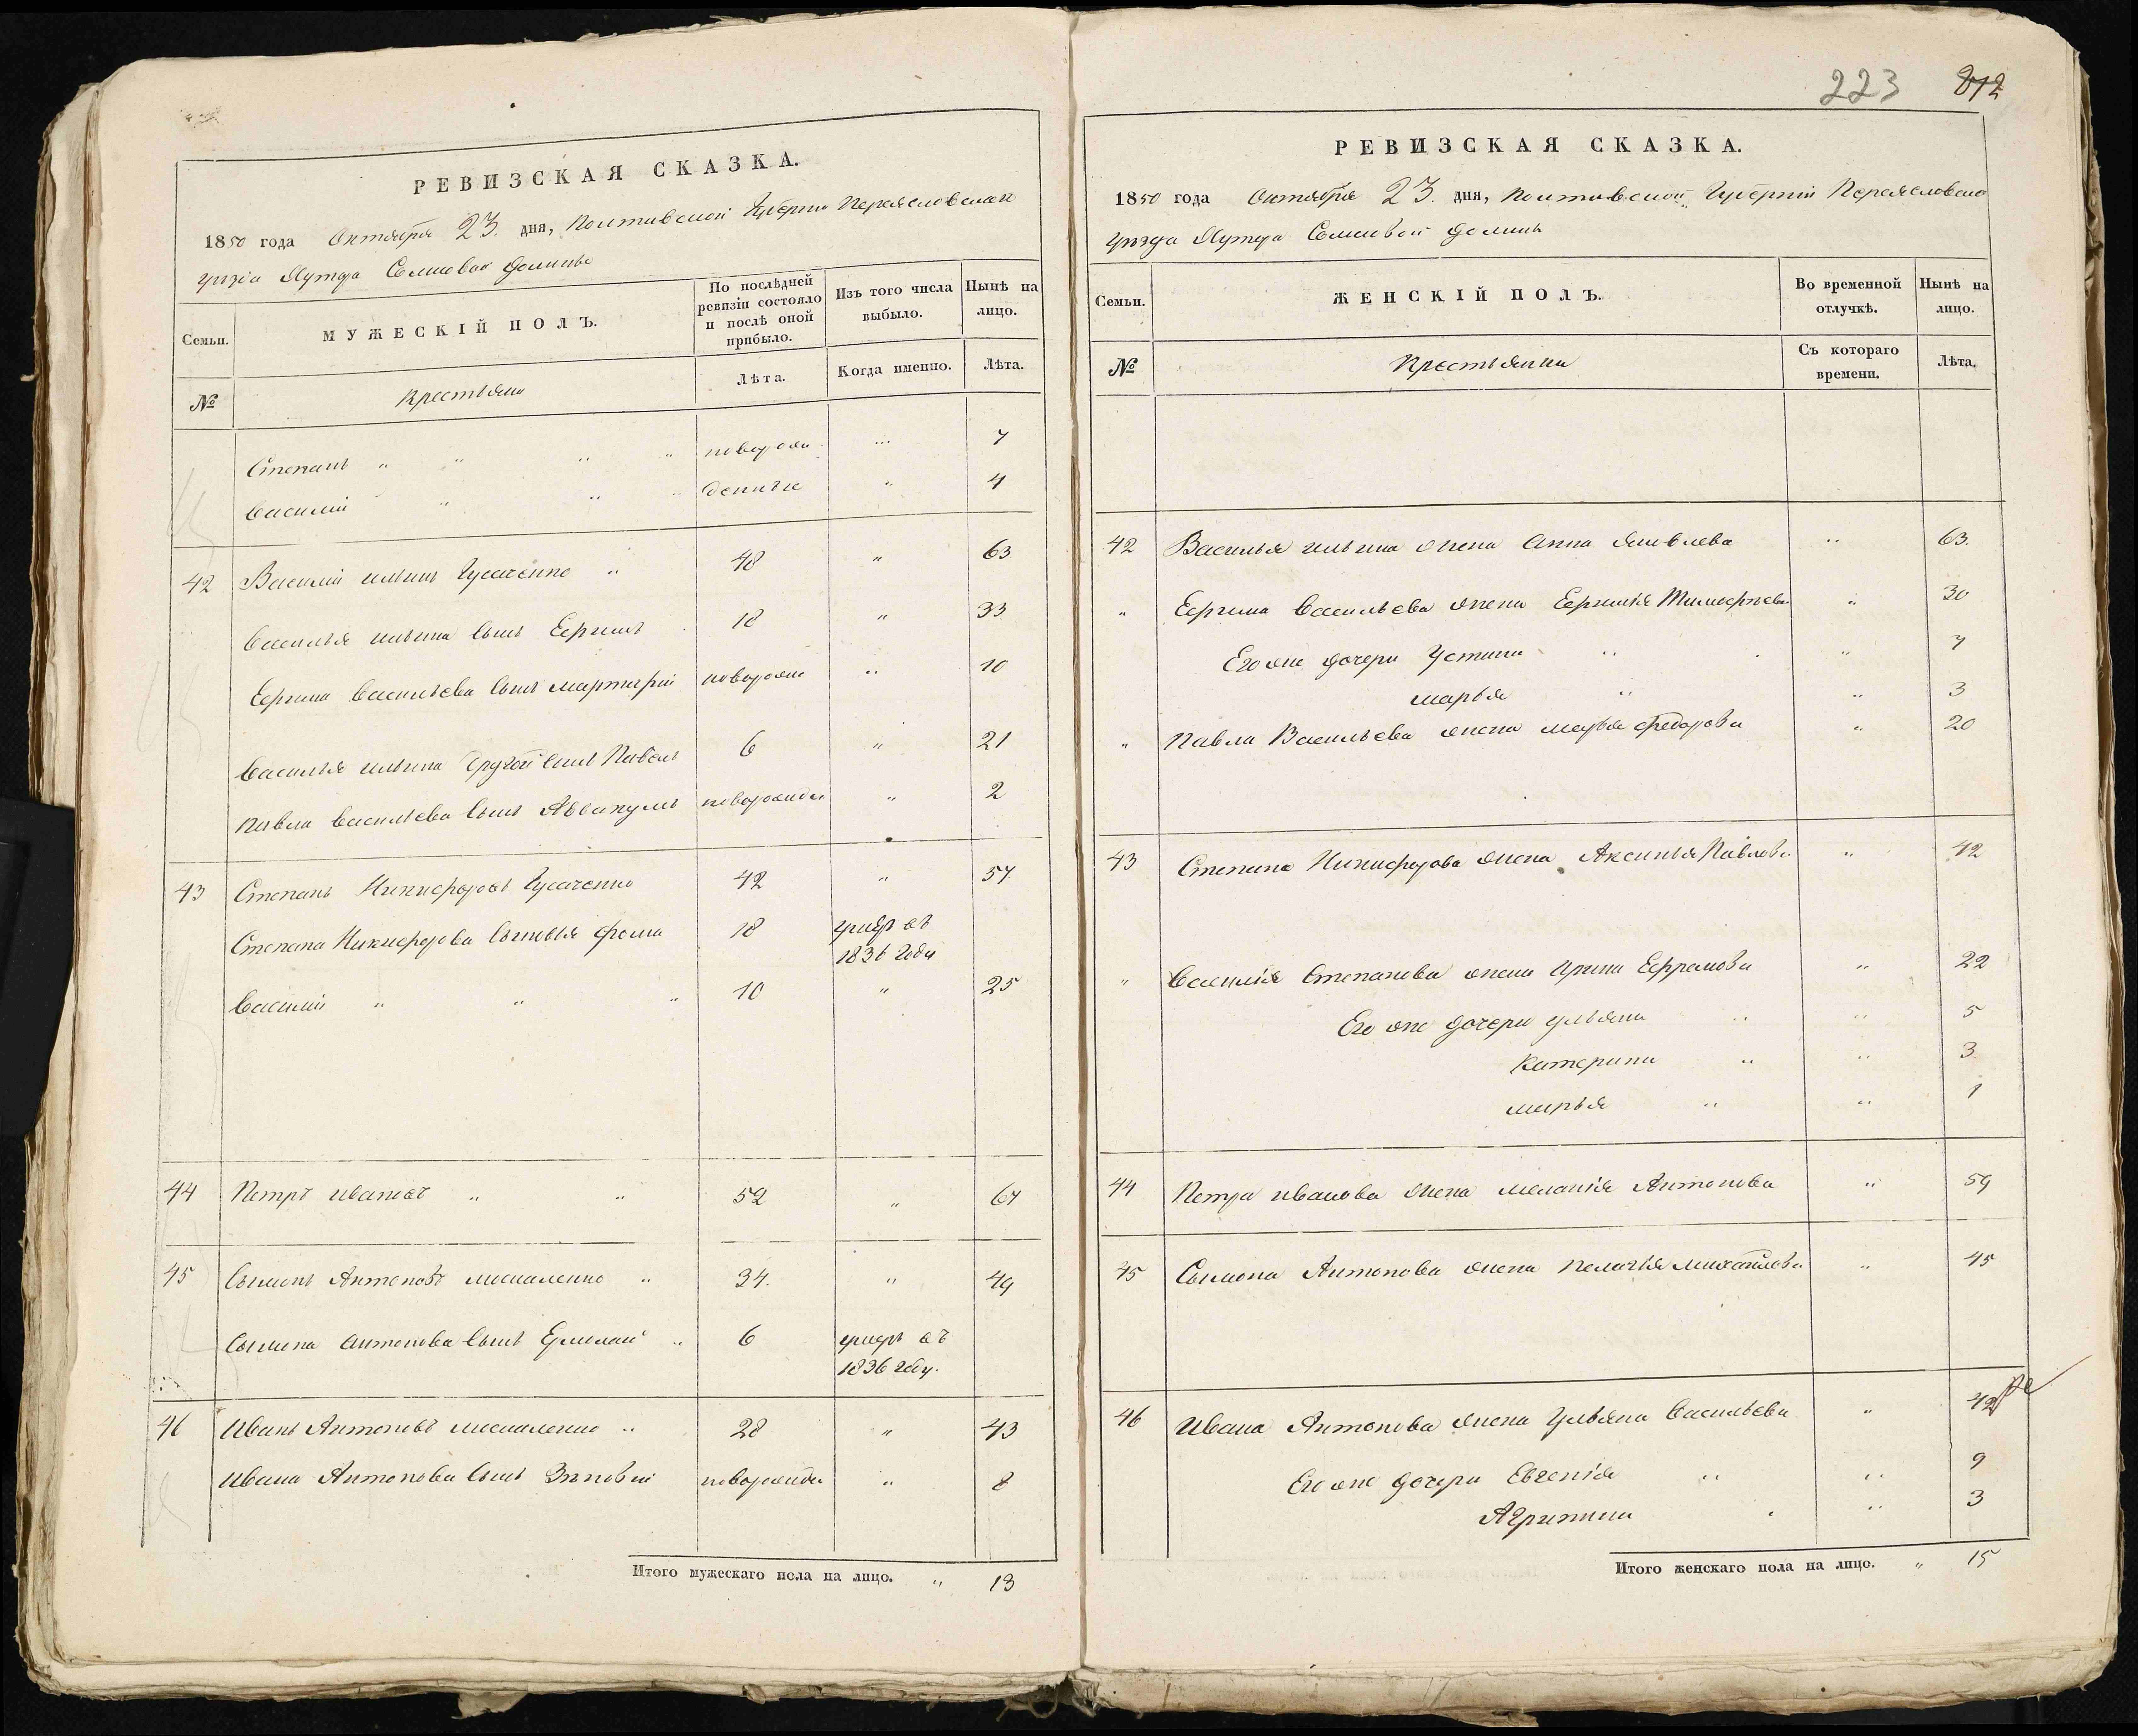 РЕВИЗСКАЯ СКАЗКА.
1850 года Октября 23. дня, Полтавской Губерніи Переясловскаго
уѣзда Хутора Сомковой Долины
Семьи. МУЖЕСКІЙ ПОЛЪ. По послѣдней ревизіи состояло и послѣ оной прибыло. Изъ того числа выбыло. Нынѣ на лицо.
№ Крестьяне Лѣта. Когда именно. Лѣта.
Степанъ " " " " новорож " 7
Василій " " " денные " 4
42 Василій Ильинъ Гусаченко " 48 " 63
Василья Ильина Сынъ Ефимъ 18 " 33
Ефима Васильева Сынъ Мартирій новорож " 10
Василья Ильина другой Сынъ Павелъ 6 " 21
Павла Васильева Сынъ Аввакумъ новорожде " 2
43 Степанъ Никифоровъ Гусаченко 42 " 57
Степана Никифорова Сыновья Фома 18 умеръ въ
1836 Году
Василій " " " 10 " 25
44 Петръ Ивановъ " " 52 " 67
45 Сымонъ Антоновъ Москаленко " 34. " 49
Сымона Антонова Сынъ Ермолай " 6 умеръ въ
1836 году.
46 Иванъ Антоновъ Москаленко " 28 " 43
Ивана Антонова Сынъ Зѣновій новорожде " 8
Итого мужескаго пола на лицо. " 13
223 212
РЕВИЗСКАЯ СКАЗКА.
1850 года Октября 23. дня, Полтавской Губерніи Переясловскаго
уѣзда Хутора Сомковой Долины
Семьи. ЖЕНСКІЙ ПОЛЪ. Во временной отлучкѣ. Нынѣ на лицо.
№ Крестьянки Съ котораго времени. Лѣта.
42 Василья Ильина жена Анна Яковлева " 63.
" Ефима Васильева жена Тимофѣева " 30
Его же дочери Устина " " 7
Марья " " 3
" Павла Васильева жена Марья Федорова " 20
43 Степана Никифорова жена Аксинья Павлова " 42
" Василія Степанова жена Ирина Ефремова " 22
Его же дочери Ульяна " " 5
Катерина " " 3.
Марья " " 1
44 Петра Иванова жена Меланія Антонова " 59
45 Сымона Антонова жена Пелагія Михайлова " 45
46 Ивана Антонова жена Ульяна Васильева " 42
Его же дочери Евгенія " " 9
Агрипина " " 3
Итого женскаго пола на лицо. " 15